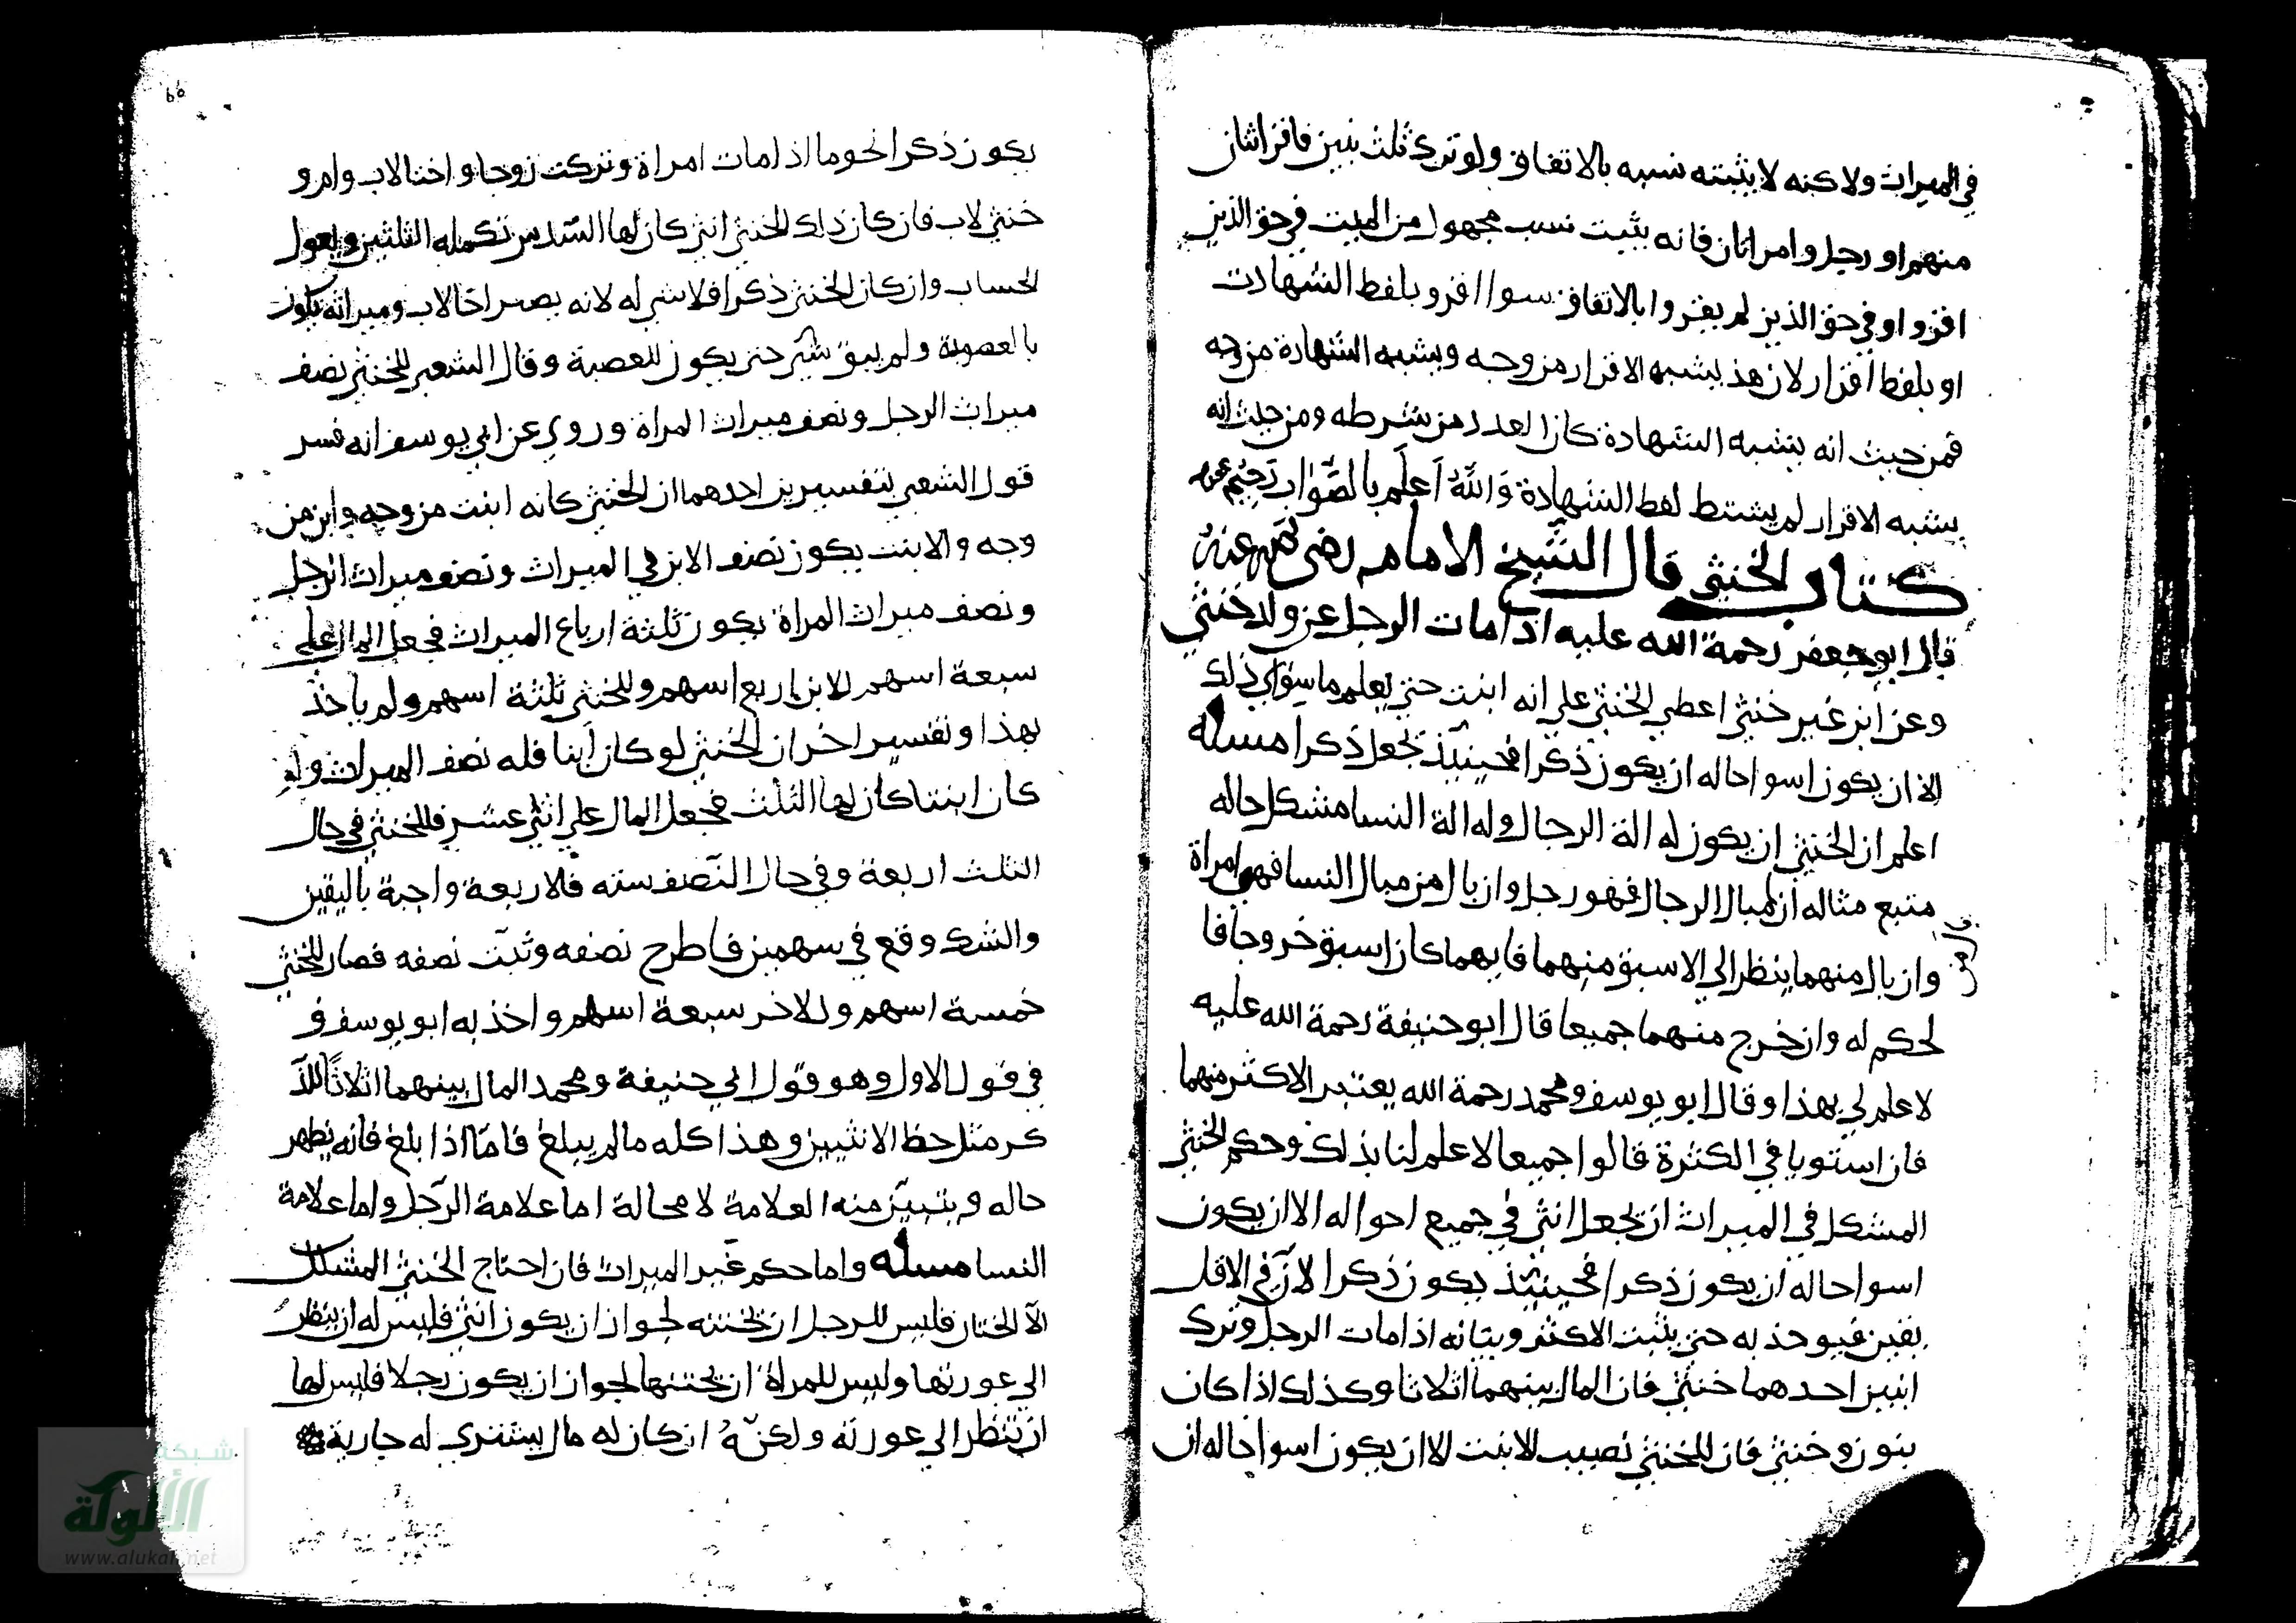 في الميراث ولاكنه لا يثبته نسبه بالاتفاق ولو ترك ثلث بنين فاقر اثنان
منهم او رجل وامراتان فانه يثبت نسب مجهول من الميت في حق الذين
اقروا وفي حق الذين لم يقروا بالاتفاق سوا اقرو بلفظ الشهادت
او بلفظ اقرار لان هذ يشبه الاقرار من وجه ويشبه الشهادة من وجه
فمن حيث انه يشبه الشهادة كان العدد من شرطه ومن حيث انه
يشبه الاقرار لم يشتط لفظ الشهادة والله اعلم بالصواب
كتاب الخنثي قال الشيخ الامام رضي الله عنه
قال ابو جعفر رحمة الله عليه اذا مات الرجل عن ولد خنثي
وعن ابن غير خنثي اعطي الخنثي علي انه ابنت حتي يعلم ما سوي ذلك
الا ان يكون اسوا حاله ان يكون ذكرا فحينئذ تجعل ذكرا مسله
اعلم ان الخنثي ان يكون له الة الرجال وله الة النسا مشكل حاله
متبع مثاله ان بال الرجال فهو رجل وان بال من مبال النسا فهي امراة
وان بال منهما ينظر الي الاسبق منهما فايهما كان اسبق خروجا فا
لحكم له وان خرج منهما جميعا قال ابو حنيفة رحمة الله عليه
لا علم لي بهذا وقال ابو يوسف ومحمد رحمة الله يعتبر الاكثر منهما
فان استويا في الكثرة قالوا جميعا لا علم لنا بذلك وحكم الخنثي
المشكل في الميراث ان تجعل انثي في جميع احواله الا ان يكون
اسوا حاله ان يكون ذكرا فحينئذ يكون ذكرا لان في الاقل
يقين فيوخذ به حتي يثبت الاكثر وبيانه اذا مات الرجل وترك
ابنين احدهما خنثي فان المال بينهما اثلاثا وكذلك اذا كان
بنون وخنثي فان للخنثي نصيب الابنت الا ان يكون اسوا حاله ان
يكون ذكرا نحو ما اذا مات امراة وتركت زوجا واختا لاب وام و
خنثي لاب فان كان ذلك الخنثي انثي كان لها السدس تكمله الثلثين ويعول
الحساب وان كان الخنثي ذكرا فلا شي له لانه يصر اخا لاب وميراثه يكون
بالعصوبة ولم يبق شي حتي يكون للعصبة وقال الشعبي للخنثي نصف
ميراث الرجل ونصف ميراث المراة وروي عن ابي يوسف انه فسر
قول الشعبي بتفسيرين احدهما ان الخنثي كانه ابنت من وجه وابن من
وجه والابنت يكون نصف الابن في الميراث ونصف ميراث الرجل
ونصف ميراث المراة يكون ثلثة ارباع الميراث فجعل المال علي
سبعة اسهم للابن اربع اسهم وللخنثي ثلثة اسهم ولم ياخذ
بهذا وتفسير اخر ان الخنثي لو كان ابنا فله نصف الميراث ولو
كان ابنتا كان لها الثلث فجعل المال علي اثني عشر فللخنثي في حال
الثلث اربعة وفي حال النصف سته فلاربعة واجبة باليقين
والشك وقع في سهمين فاطرح نصفه وثبت نصفه فصار للخنثي
خمسة اسهم وللاخر سبعة اسهم واخذ به ابو يوسف و
في قول الاول وهو قول ابي حنيفة ومحمد المال بينهما اثلاثا للذ
كر مثل حظ الانثيين وهذا كله ما لم يبلغ فاما اذا بلغ فانه يظهر
حاله ويتبين منه العلامة لا محالة اما علامة الرجل واما علامة
النسا مسله واما حكم غير الميراث فان احتاج الخنثي المشكل
الا الختان فليس للرجل ان تختنه لجواز ان يكون انثي فليس له ان ينظر
الي عورتها وليس للمراة ان تختنها لجواز ان يكون رجلا فليس لها
ان تنظر الي عورته ولكنه ان كان له مال يشتري له جارية
شبكة
الألوكة
www.alukah.net